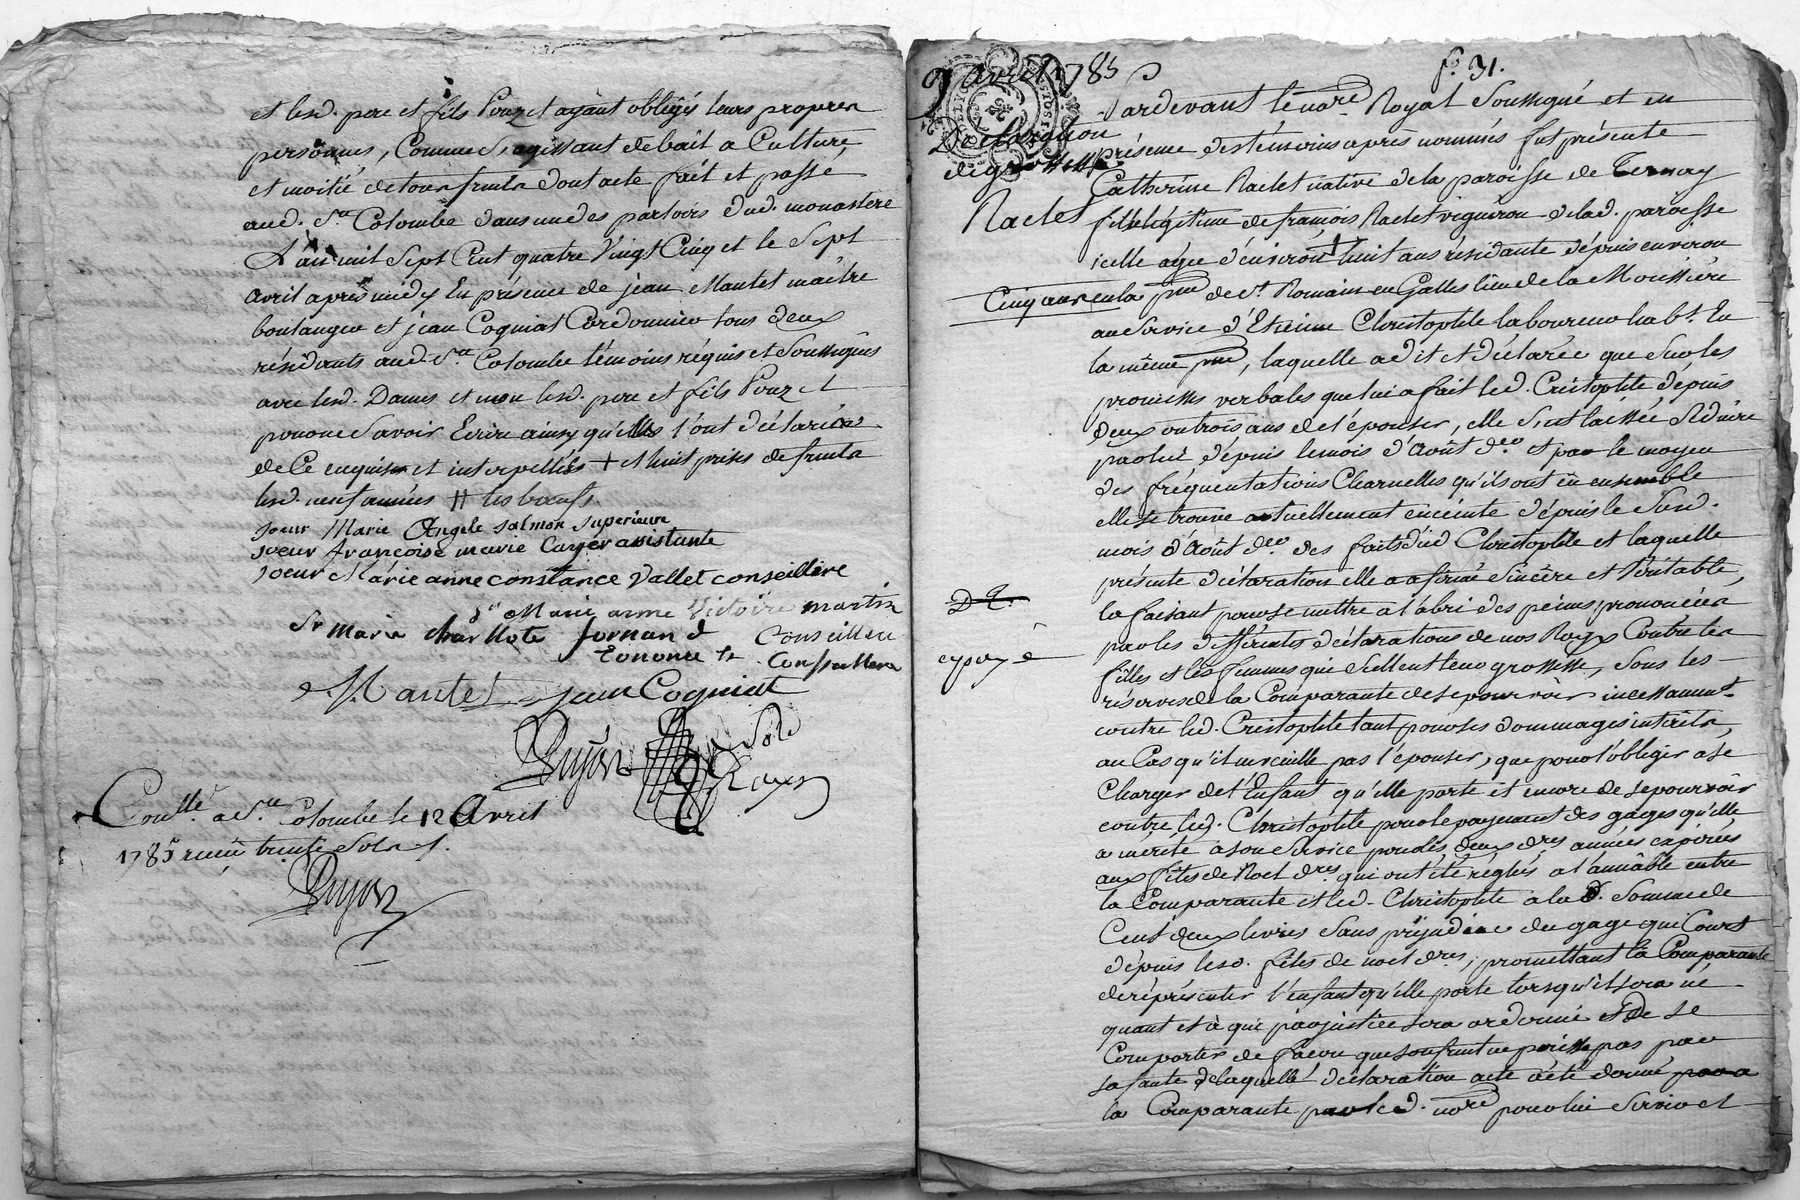 et lesd. pere et fils Pouzet ayant obligés leurs propres
personnes, Comme s'agissant de bail a Culture,
et moitié de tous fruits dont acte fait et passé
aud. Ste Colombe dans un des parloirs dud. monastere
L'an mil Sept Cent quatre Vingt Cinq et le Sept
avril après midy En présence de jean Mantet maître
boulanger et jean Cogniat Cordonnier tous deux
résidants aud. Ste Colombe témoins réquis et Soussignés
avec lesd. Dames et non lesd. pere et fils Pouzet
pour ne Savoir Ecrire ainsy qu'ills l'ont déclarés
de Ce enquis et interpellés + et huit prises de fruits
lesd. neuf années # les bœufs
soeur Marie Angele salmon superieure
soeur françoise marie Carrer assistante
soeur Marie anne constance Vallet conseillere
Sr Marie anne Victoire martin
Sr marie charllote fornand Conseillere
Econome Conseillere
Mantet jean Cogniat
Dujon
Solr
Controllé a Ste Colombe le 12 Avril
1785 reçu trente Sols
Dujon
9 avril 1785 f° 31.
Pardevant le nore Royal Soussigné et en
Déclaration présence des témoins après nommés fut présente
de grossesse Catherine Raclet native de la paroisse de Ternay
Raclet fille légitime de françois Raclet vigneron de lad. paroisse
icelle agée d'environ huit ans résidante dépuis environ
Cinq ans en la psse de St Romain en Galles lieu de la Moussière
au Service d'Etienne Christophle laboureur habt. En
la même psse, laquelle a dit et déclarée que Sur les
promesses verbales que lui a fait led. Cristophle dépuis
deux ou trois ans de l'épouser, elle s'est laissée Séduire
par lui dépuis le mois d'Août der et par le moyen
des fréquentations Charnelles qu'ils ont eü ensemble
elle se trouve actuellement enceinte dépuis le Susd.
mois d'Août der des faits dud Christophle et laquelle
présente déclaration elle a afirmé Sincère et Véritable,
la faisant pour se mettre a l'abri des peines prononcées
par les différentes déclarations de nos Roys Contre les
filles et les femmes qui Cellent leur grossesse, Sous les
expdyé
réserves de la Comparante de se pourvoir incessamment
contre led. Cristophle tant pour ses dommages intérêts,
au Cas qu'il ne veuille pas l'épouser, que pour l'obliger a se
Charger de l'Enfant qu'elle porte et encore de se pourvoir
contre led. Christophle pour le payement des gages qu'elle
a mérité a son Service pour les deux dres années expirées
aux fêtes de Noel dres qui ont été réglés a l'amiable entre
la Comparante et led. Christophle a la Somme de
Cent deux livres Sans préjudice du gage qui Court
dépuis lesd. fêtes de noel dres, promettant la Comparante
de réprésenter l'enfant qu'elle porte lorsqu'il sera né
quant et à qui par justice sera ordonné et De se
Comporter de façon que son fruit ne périsse pas par
sa faute de laquelle déclaration acte a été donné
la Comparante par led. nore pour lui Servir et